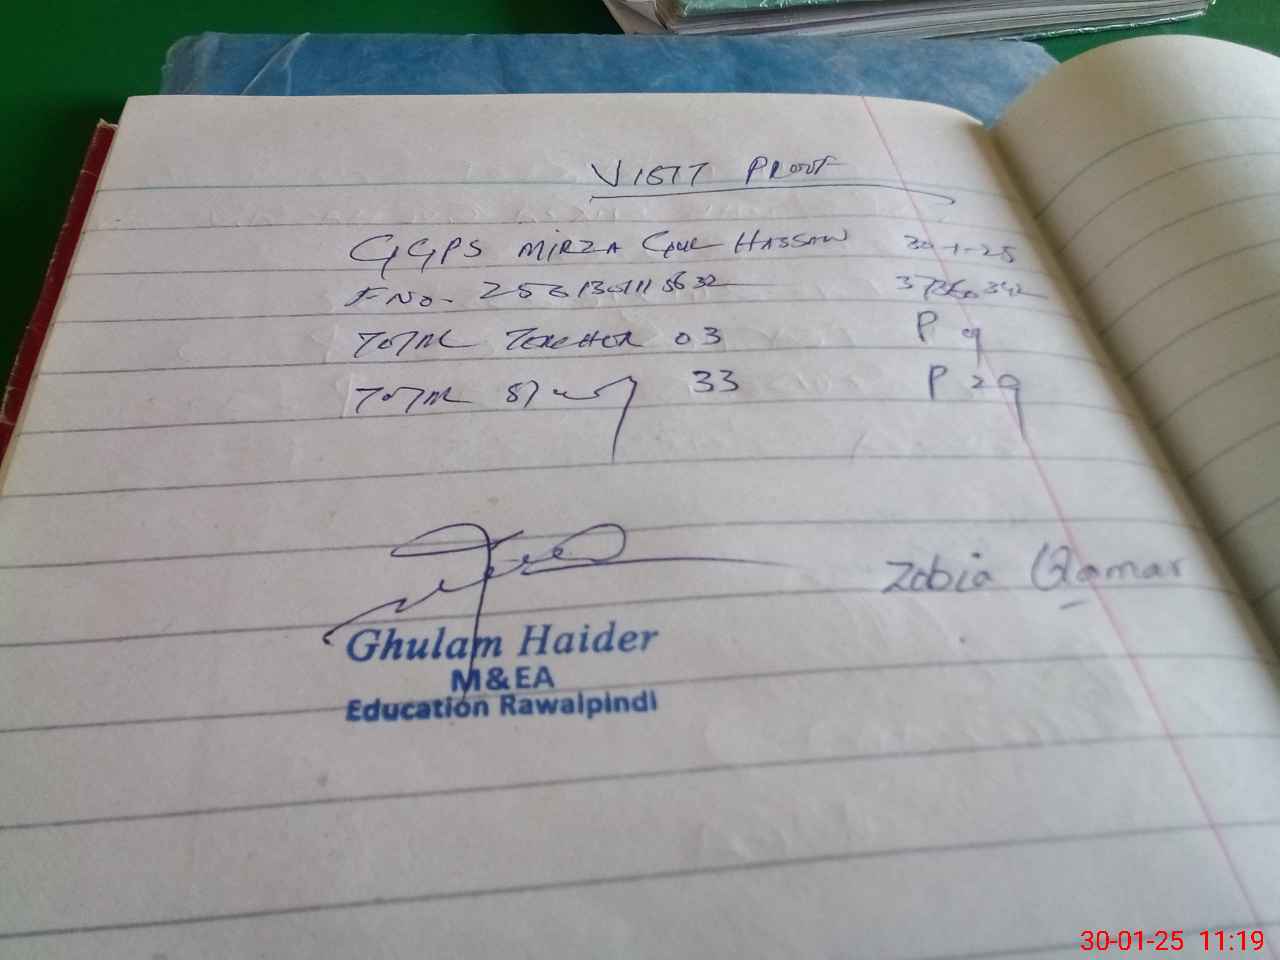 VISIT PROOF
GGPS MIRZA GUL HASSAN 30-1-25
F NO- 37360342
TOTAL TEACHER 03 P
TOTAL 33 P 29
Zobia Qamar
Ghulam Haider
M&EA
Education Rawalpindi
30-01-25 11:19